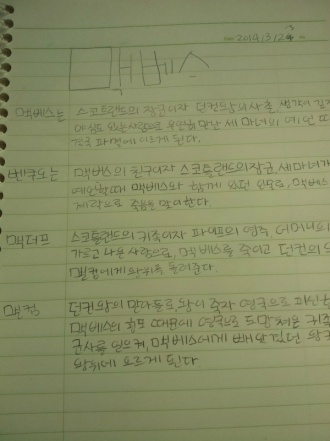 2019/3/24
맥베스
맥베스는 스코틀랜드의 장군이자 던컨왕의 사촌
있는 사람으로 우연히 만난 세 마녀의 예언
결국 파멸에 이르게 된다.
벤쿠오는 맥베스의 친구이자 스코틀랜드의 장군, 세마녀가
예언할때 맥베스와 함께 있던 인물로, 맥베스
계략으로 죽음을 맞이한다.
맥더프 스코틀랜드의 귀족이자 파이프의 영주 어머니의
가르고 나온 사람으로, 맥베스를 죽이고 던컨의
맬컴에게 왕위를 돌려준다.
맬컴 던컨왕의 맏아들로, 왕이 죽자 영국으로 피신
맥베스의 때문에 영국으로 도망쳐온
군사를 일으켜, 맥베스에게 빼앗겼던
왕위에 오르게 된다